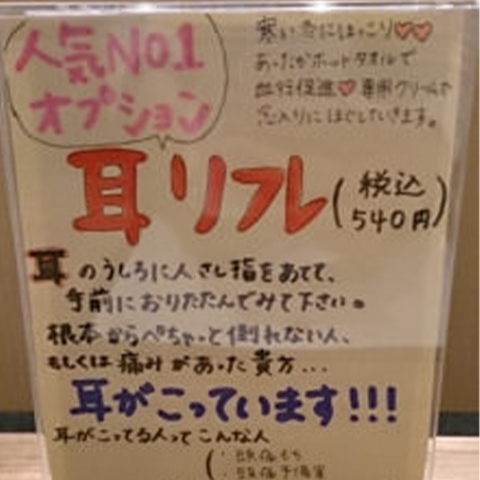 人気NO.1
オプション
寒い冬にほっこり♡♡
あったかホットタオルで
血行促進♡専用クリームで
念入りにほぐしていきます。
耳リフレ(税込
540円)
耳のうしろに人さし指をあてて、
手前におりたたんでみて下さい。
根本からぺちゃっと倒れない人、
もしくは痛みがあった貴方...
耳がこっています!!!
耳がこってる人ってこんな人
・頭痛もち
・頭痛予備軍